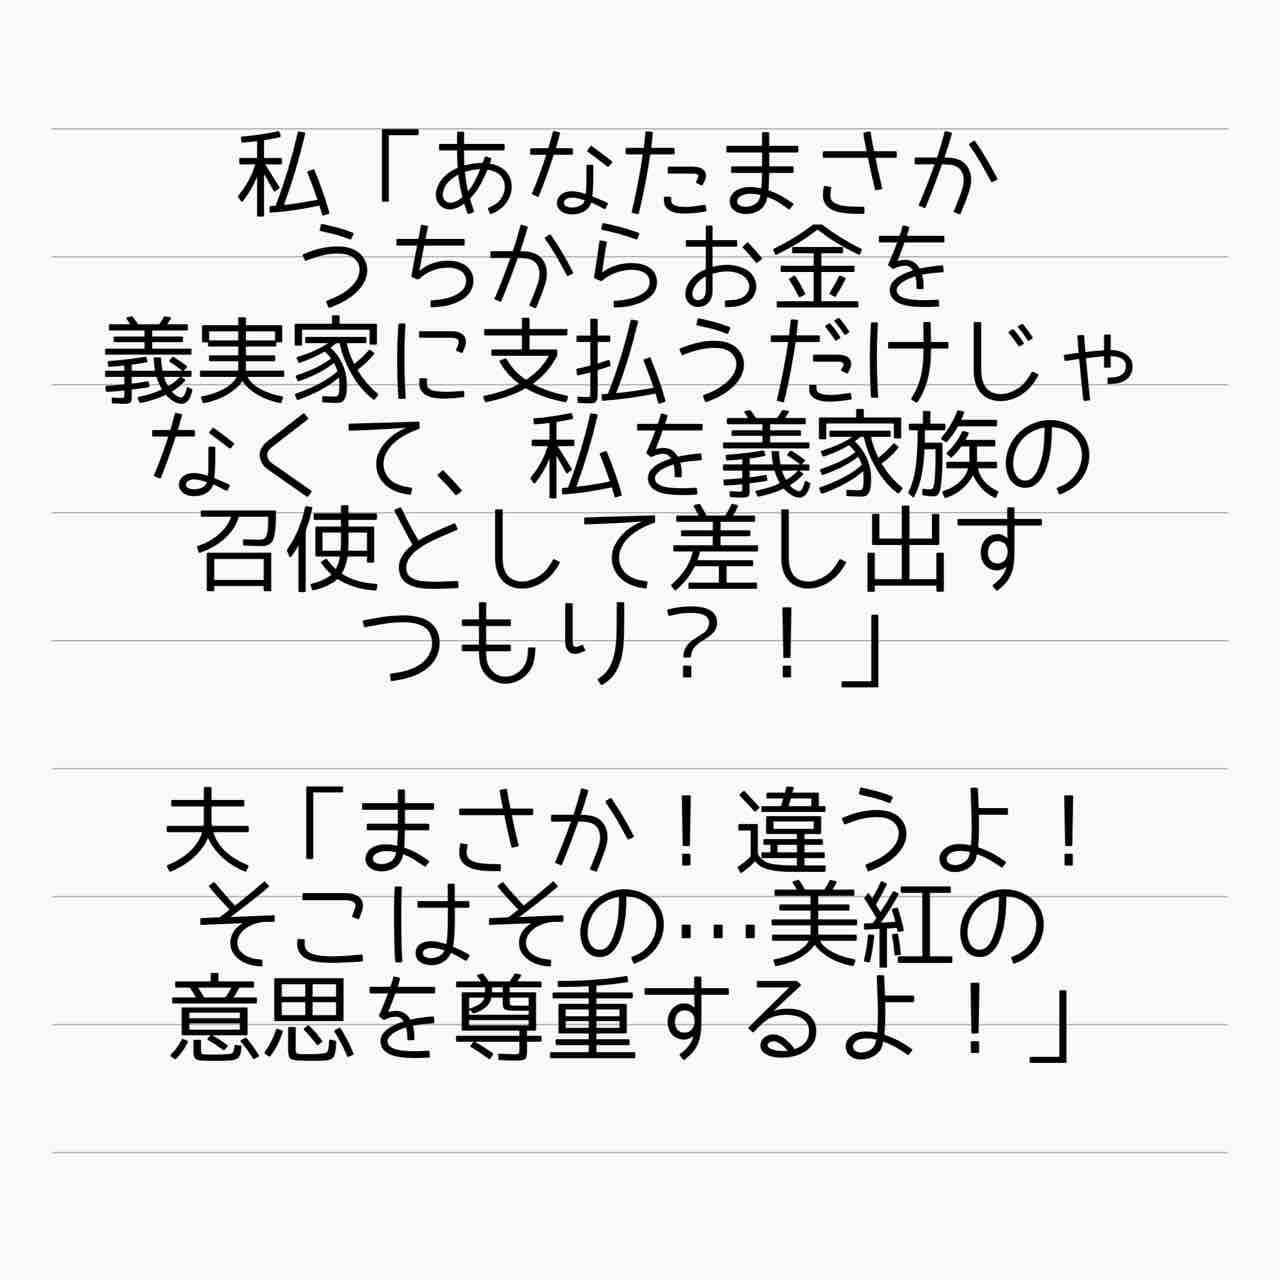 私「あなたまさか
うちからお金を
義実家に支払うだけじゃ
なくて、私を義家族の
召使として差し出す
つもり？！」
夫「まさか！違うよ！
そこはその…美紅の
意思を尊重するよ！」